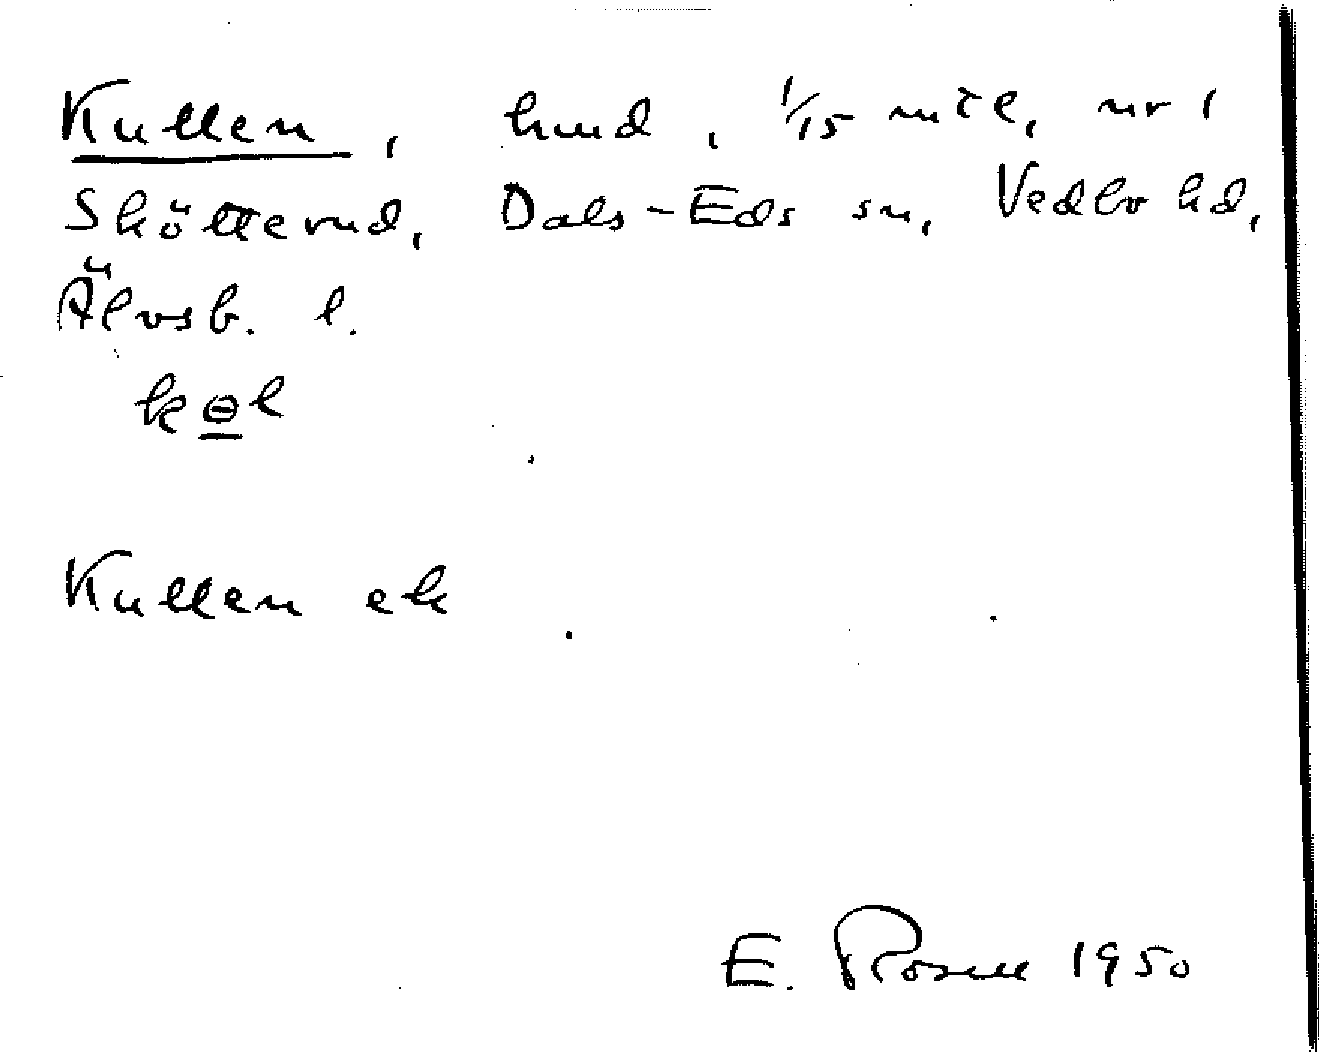 Kullen, hmd, 1/15 mtl, nr 1
Skötterud, Dals-Eds sn, Vedbo hd,
Älvsb. l.
kɵl
Kullen ek
E. Rosell 1950